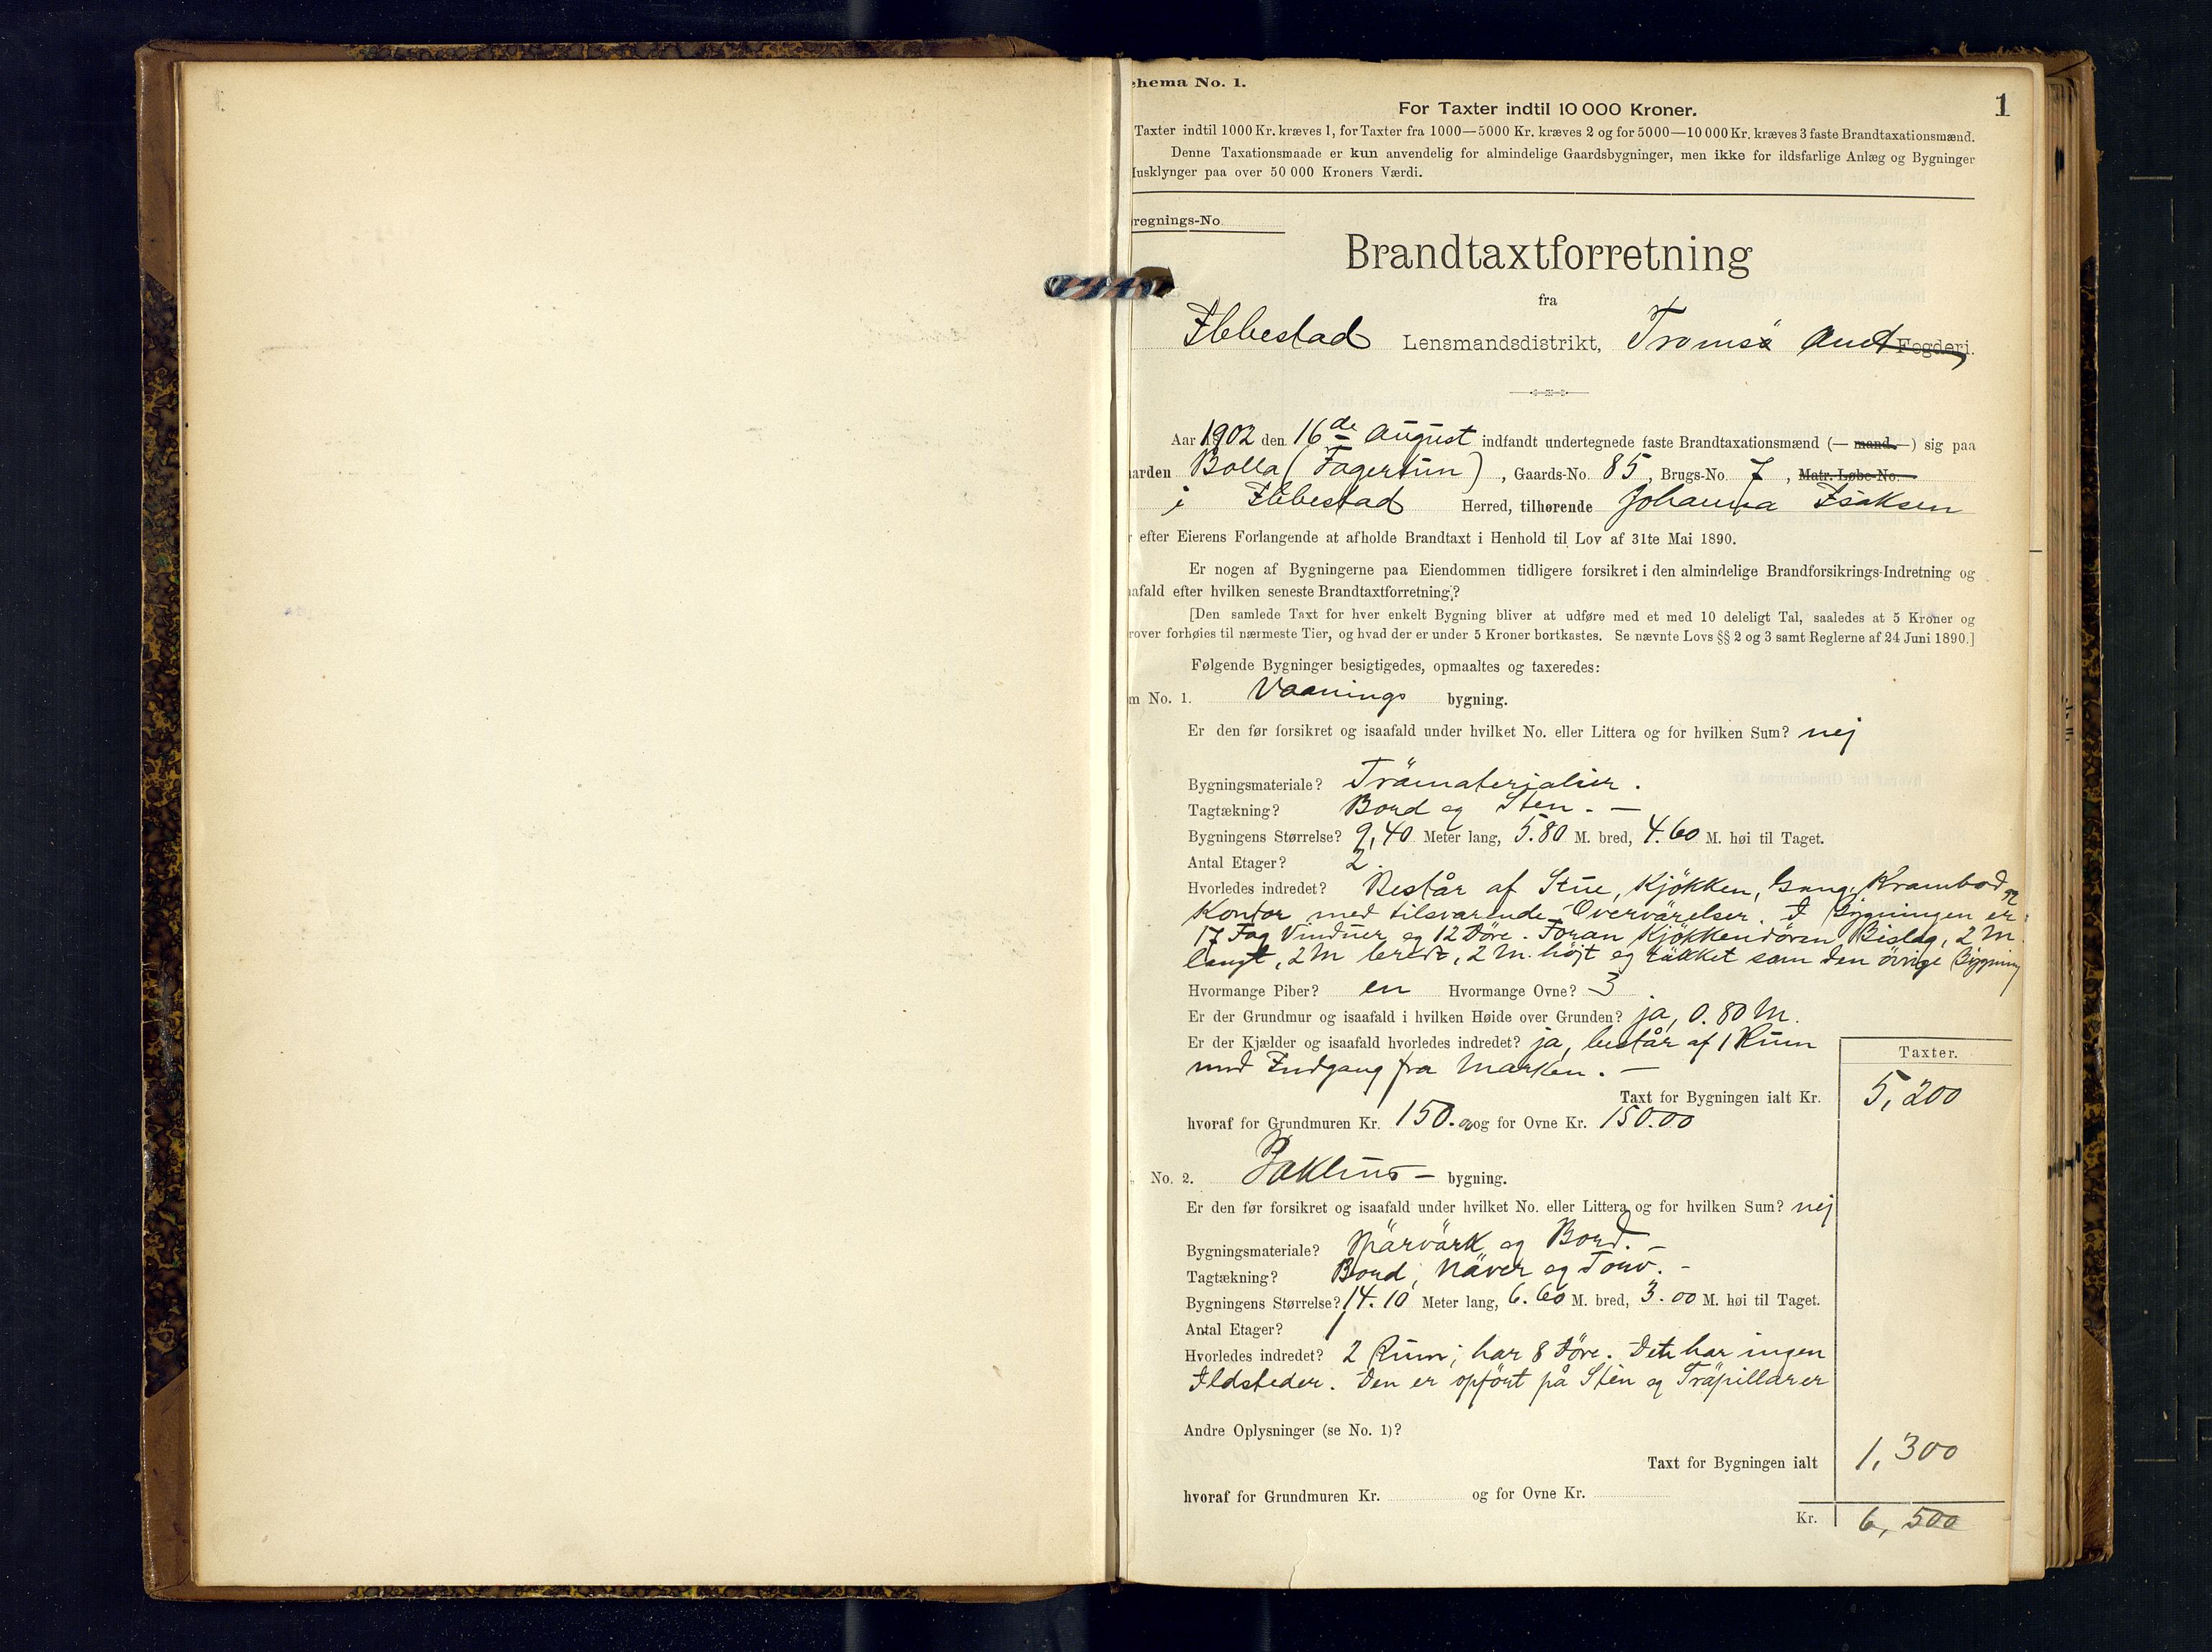 1
chema No. 1.
For Taxter indtil 10 000 Kroner.
Taxter indtil 1000 Kr. kræves 1, for Taxter fra 1000—5000 Kr. kræves 2 og for 5000—10 000 Kr. kræves 3 faste Brandtaxationsmænd.
Denne Taxationsmaade er kun anvendelig for almindelige Gaardsbygninger, men ikke for ildsfarlige Anlæg og Bygninger
Husklynger paa over 50 000 Kroners Værdi.
regnings-No.
Brandtaxtforretning
fra
Ibbestad Lensmandsdistrikt, Tromsö Amt Fogderi.
Aar 1902 den 16de August indfandt undertegnede faste Brandtaxationsmænd (— mand. —) sig paa
arden Bolla (Fagertun), Gaards-No. 85, Brugs-No. 7, Matr. Løbe-No.
i Ibbestad Herred, tilhørende Johanna Isaksen
r efter Eierens Forlangende at afholde Brandtaxt i Henhold til Lov af 31te Mai 1890.
Er nogen af Bygningerne paa Eiendommen tidligere forsikret i den almindelige Brandforsikrings-Indretning og
afald efter hvilken seneste Brandtaxtforretning?
[Den samlede Taxt for hver enkelt Bygning bliver at udføre med et med 10 deleligt Tal, saaledes at 5 Kroner og
rover forhøies til nærmeste Tier, og hvad der er under 5 Kroner bortkastes. Se nævnte Lovs §§ 2 og 3 samt Reglerne af 24 Juni 1890.]
Følgende Bygninger besigtigedes, opmaaltes og taxeredes:
m No. 1. Vaanings bygning.
Er den før forsikret og isaafald under hvilket No. eller Littera og for hvilken Sum? nej
Bygningsmateriale? Trämaterialier.
Tagtækning? Bord og Sten. —
Bygningens Størrelse? 9,40 Meter lang, 5.80 M. bred, 4.60 M. høi til Taget.
Antal Etager? 2.
Hvorledes indredet? Består af Stue, Kjökken, Gang, Krambod og
Kontor med tilsvarende Overvärelser. I Bygningen er
17 Fag Vinduer og 12 Döre. Foran Kjökkendören Bislag, 2 M.
langt, 2 M bredt, 2 M. höjt og täkket som den övrige Bygning
Hvormange Piber? en Hvormange Ovne? 3
Er der Grundmur og isaafald i hvilken Høide over Grunden? ja, 0.80 M.
Er der Kjælder og isaafald hvorledes indredet? ja, består af 1 Rum
med Indgang fra Marken. —
Taxter.
Taxt for Bygningen ialt Kr. 5,200
hvoraf for Grundmuren Kr. 150.00 og for Ovne Kr. 150.00
No. 2. — bygning.
Er den før forsikret og isaafald under hvilket No. eller Littera og for hvilken Sum? nej
Bygningsmateriale? Spärvärk og Bord. —
Tagtækning? Bord, Näver og Torv. —
Bygningens Størrelse? 14.10 Meter lang, 6.60 M. bred, 3.00 M. høi til Taget.
Antal Etager? 1
Hvorledes indredet? 2 Rum; har 8 Döre. Det har ingen
Ildsteder. Den er opfört på Sten og Träpillarer
Andre Oplysninger (se No. 1)?
Taxt for Bygningen ialt 1,300
hvoraf for Grundmuren Kr. og for Ovne Kr.
Kr. 6,500